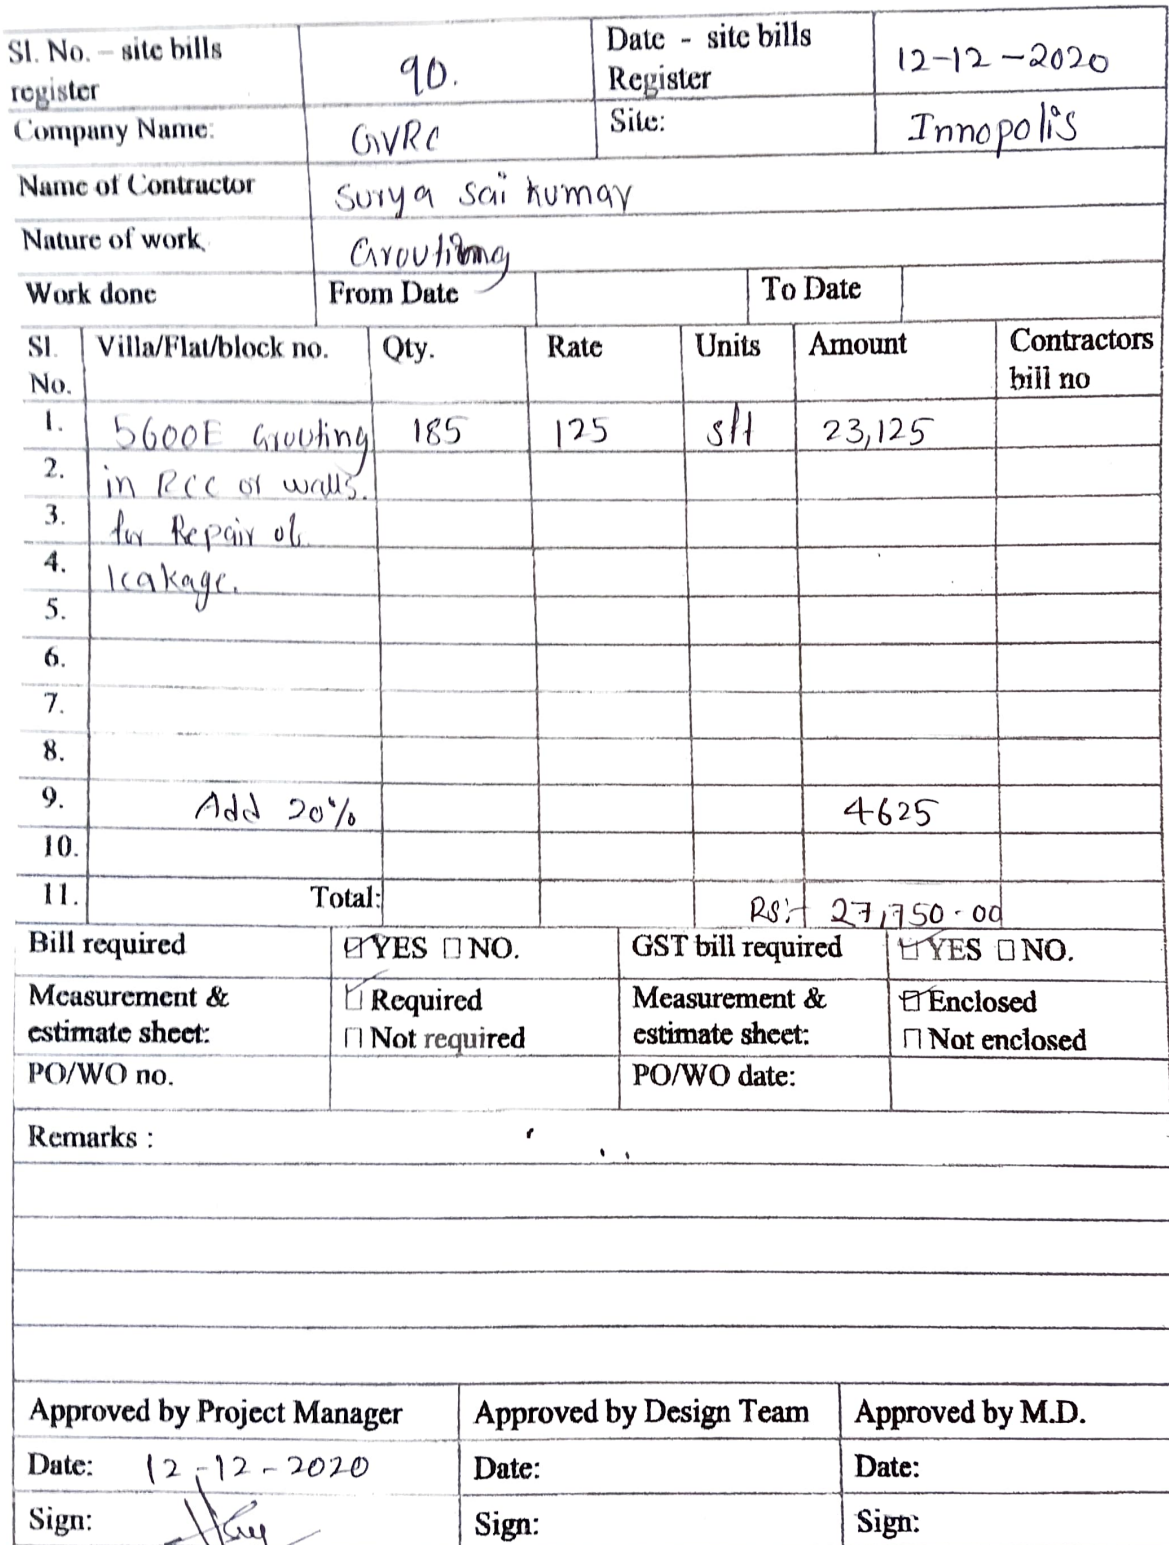 Sl. No. – site bills register 90. Date - site bills Register 12-12-2020
Company Name: GVRC Site: Innopolis
Name of Contractor Surya Sai Kumar
Nature of work Grouting
Work done From Date To Date
Sl. No. Villa/Flat/block no. Qty. Rate Units Amount Contractors bill no
1. 5600E Grouting 185 125 sft 23,125
2. in RCC or walls.
3. for Repair of
4. leakage.
5.
6.
7.
8.
9. Add 20% 4625
10.
11. Total: RS:- 27,750.00
Bill required ☑ YES ☐ NO. GST bill required ☑ YES ☐ NO.
Measurement & estimate sheet: ☑ Required ☐ Not required Measurement & estimate sheet: ☑ Enclosed ☐ Not enclosed
PO/WO no. PO/WO date:
Remarks :
Approved by Project Manager Approved by Design Team Approved by M.D.
Date: 12-12-2020 Date: Date:
Sign: Sign: Sign: